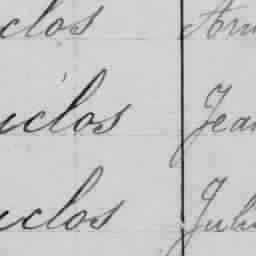 clos Arm
uclos Jean
uclos Juli